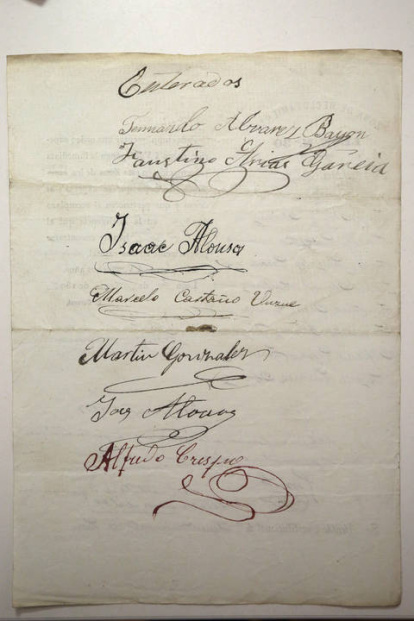 Enterados
Fernando Alvarez Bayon
Faustino Arias Garcia
Isaac Alonso
Marcelo Castaño
Martin Gonzalez
Alfredo Crespo